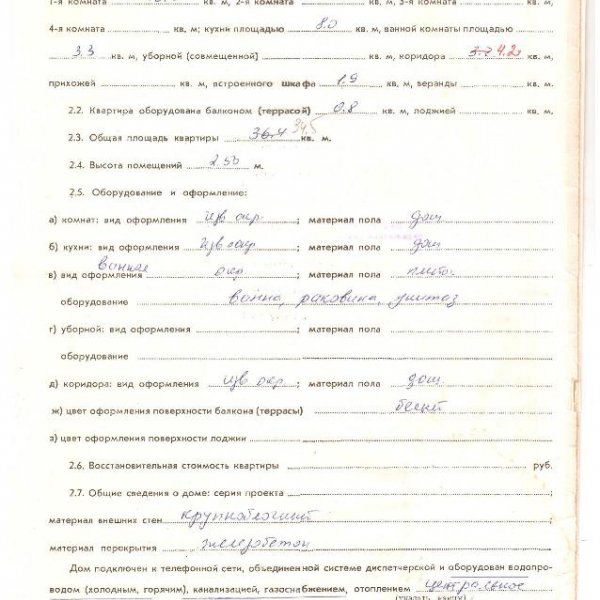 1-я комната кв. м, 2-я комната кв. м, 3-я комната кв. м,
4-я комната кв. м; кухни площадью 8.0 кв. м, ванной комнаты площадью
3.3 кв. м, уборной (совмещенной) кв. м, коридора 4.2 кв. м,
прихожей кв. м, встроенного шкафа 1.9 кв. м, веранды кв. м,
2.2. Квартира оборудована балконом (террасой) 0.8 кв. м, лоджией кв. м,
2.3. Общая площадь квартиры 36.4 34.5 кв. м.
2.4. Высота помещений 2.50 м.
2.5. Оборудование и оформление:
а) комнат: вид оформления изв окр ; материал пола дощ
б) кухни: вид оформления изв окр ; материал пола дощ
ванная
в) вид оформления окр ; материал пола плит.
оборудование ванна, раковина, унитаз
г) уборной: вид оформления ; материал пола
оборудование
д) коридора: вид оформления изв окр ; материал пола дощ.
ж) цвет оформления поверхности балкона (террасы) белый
з) цвет оформления поверхности лоджии
2.6. Восстановительная стоимость квартиры руб.
2.7. Общие сведения о доме: серия проекта
материал внешних стен крупноблочный
материал перекрытия железобетон
Дом подключен к телефонной сети, объединенной системе диспетчерской и оборудован водопро-
водом (холодным, горячим), канализацией, газоснабжением, отоплением центральное
(указать какого)